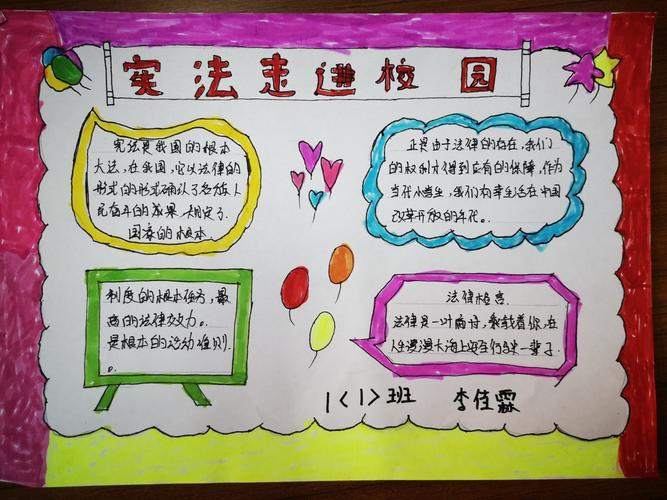 宪法走进校园
宪法是我国的根本
大法,在我国,它以法律的
形式的形式确认了各族人
民奋斗的成果 规定了
国家的根本
制度的根本任务,最
高的法律效力。
是根本的活动准则
。
正是由于法律的存在,我们
的权利才得到应有的保障,作为
当代小学生,我们有幸生活在中国
改革开放的年代。
法律格言
法律是一叶扁舟,乘载着你,在
人生漫漫大海上安全行驶一辈子
1<1>班 李佳霖